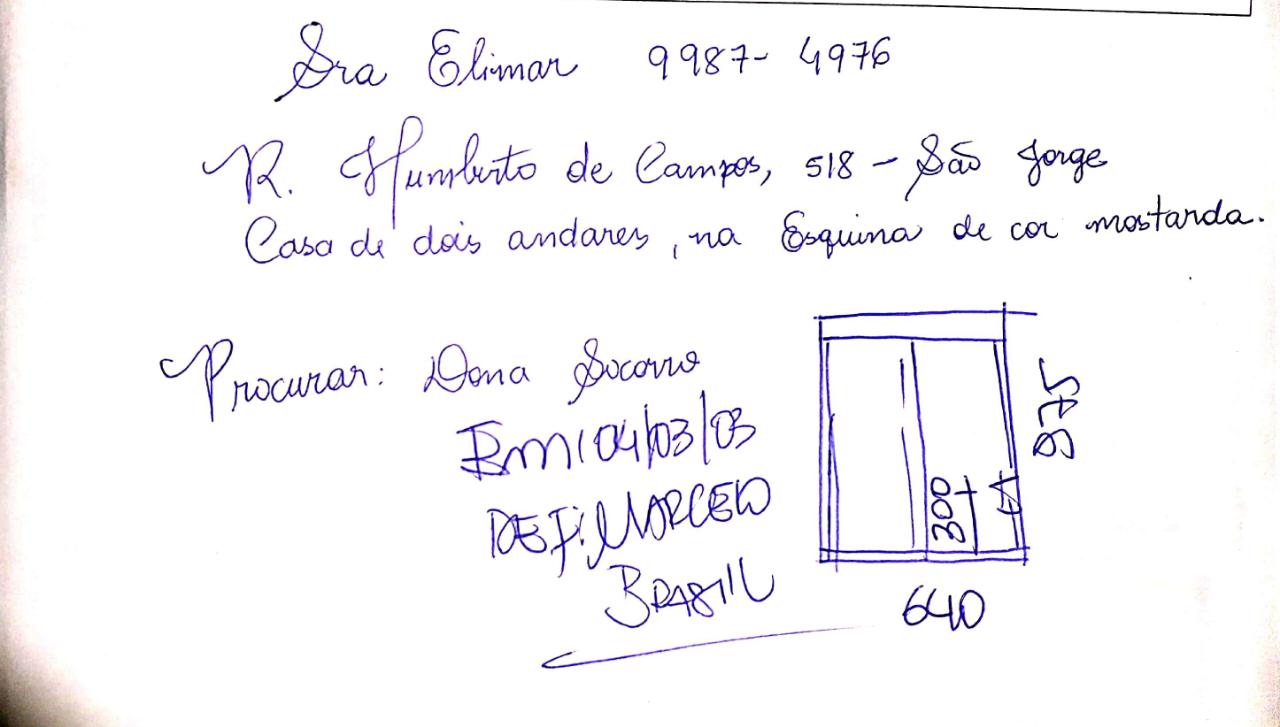 Sra Elimar 9987-4976
R. Humberto de Campos, 518 - São Jorge
Casa de dois andares, na Esquina de cor mostarda.
Procurar: Dona Socorro
Em 04/03/03
MARCELO
BRASIL
975
300
640